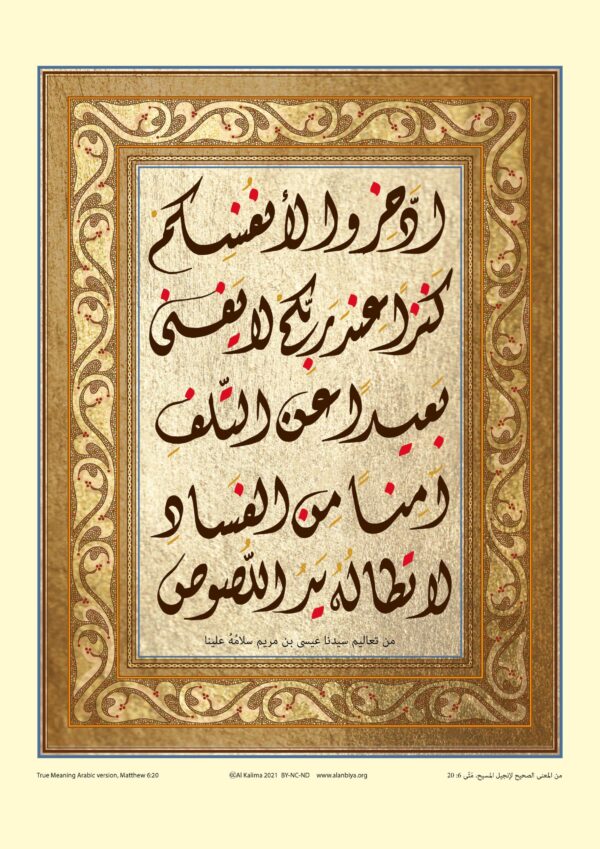 ادَّخِروا لأنفُسِكم
كَنزًا عِندَ رَبِّكُم لا يَفنى
بَعيدًا عَنِ التَّلَفِ
آمِنًا مِنَ الفَسادِ
لا تطالُهُ يَدُ اللُّصوصِ
من تعاليم سيدنا عيسى بن مريم سلامُهُ علينا
True Meaning Arabic version, Matthew 6:20
©Al Kalima 2021 BY-NC-ND www.alanbiya.org
من المعنى الصحيح لإنجيل المسيح، مَتّى 6: 20